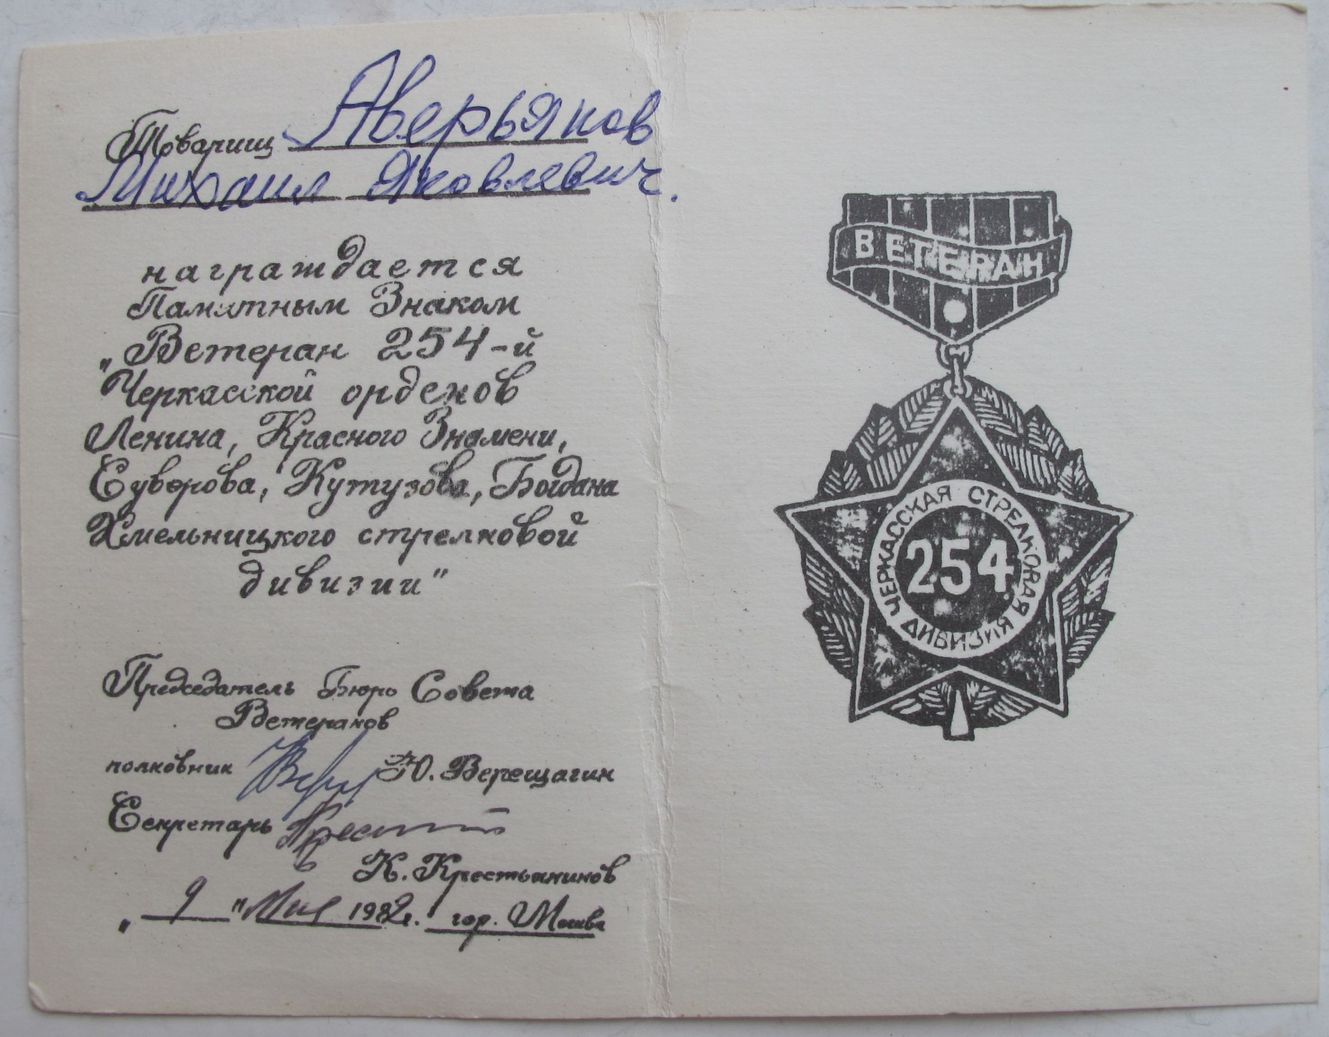 Товарищ Аверьянов
Михаил Яковлевич.
награждается
Памятным Знаком
„Ветеран 254-й
Черкасской орденов
Ленина, Красного Знамени,
Суворова, Кутузова, Богдана
Хмельницкого стрелковой
дивизии"
Председатель Бюро Совета
Ветеранов
полковник Ю. Верещагин
Секретарь
К. Крестьянинов
„9" Мая 1982г. гор. Москва
ВЕТЕРАН
ЧЕРКАССКАЯ СТРЕЛКОВАЯ
254
ДИВИЗИЯ